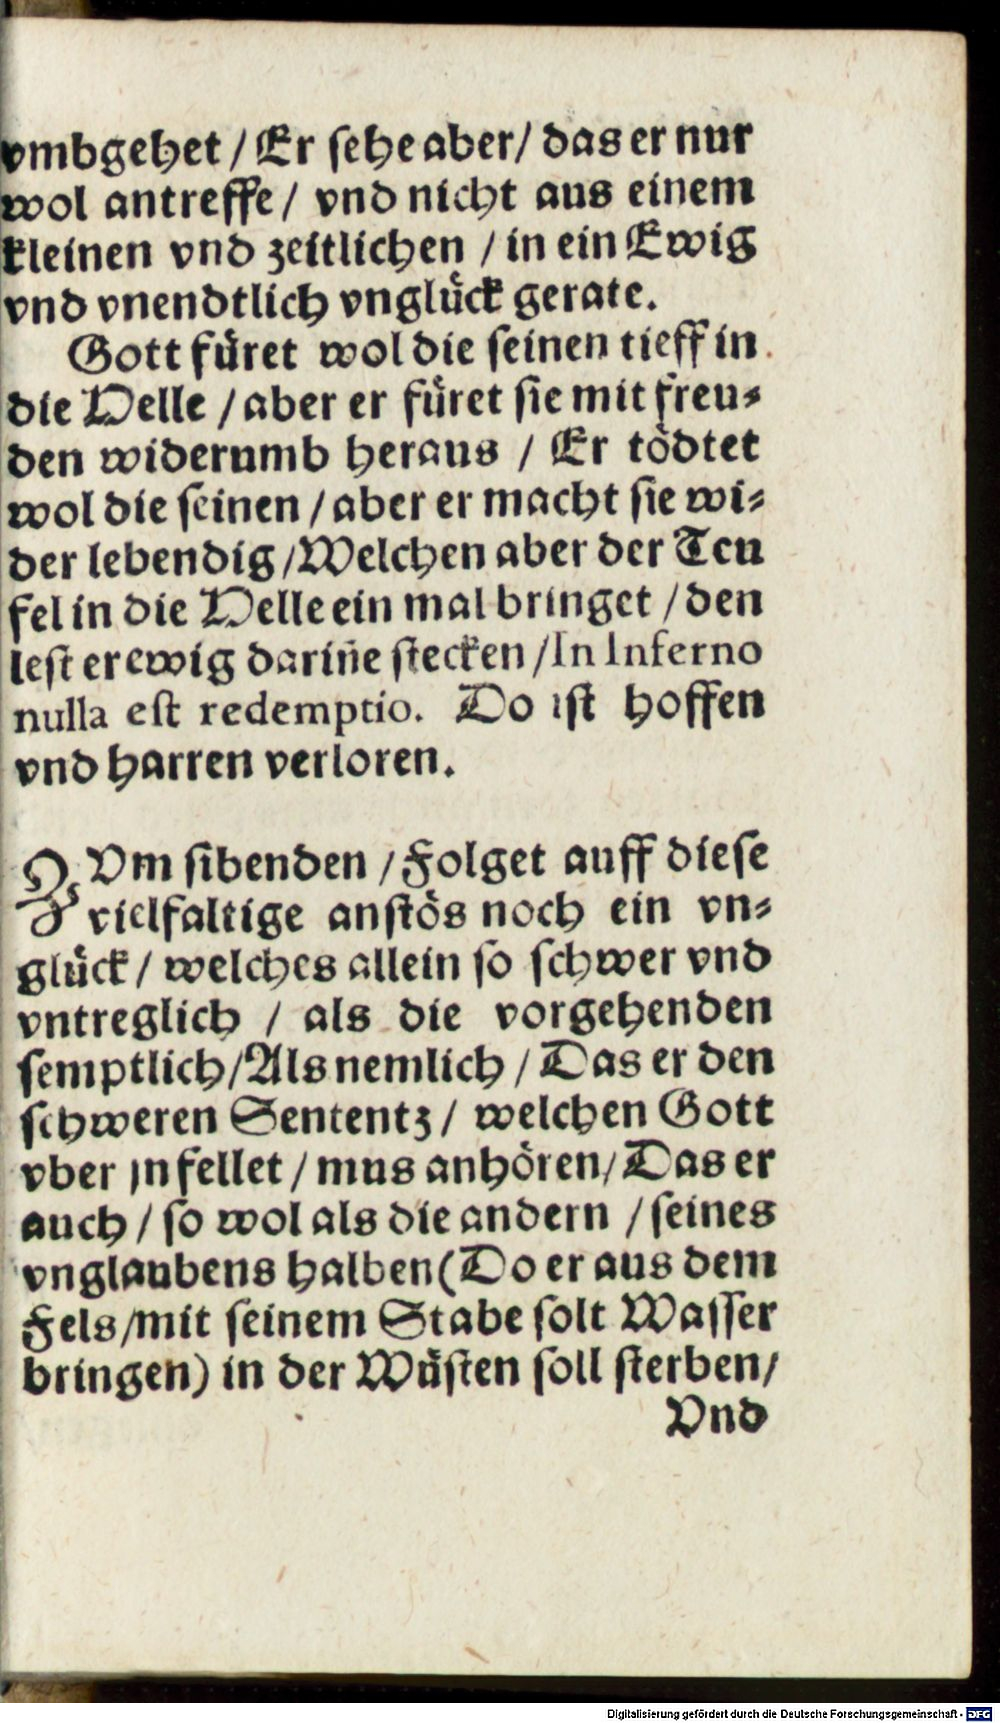 vmbgehet / Er sehe aber / das er nur
wol antreffe / vnd nicht aus einem
kleinen vnd zeitlichen / in ein Ewig
vnd vnendtlich vnglück gerate.
Gott füret wol die seinen tieff in
die Helle / aber er füret sie mit freu⸗
den widerumb heraus / Er tödtet
wol die seinen / aber er macht sie wi⸗
der lebendig / Welchen aber der Teu
fel in die Helle ein mal bringet / den
lest er ewig dariñe stecken / In Inferno
nulla est redemptio. Do ist hoffen
vnd harren verloren.
ZVm sibenden / Folget auff diese
vielfaltige anstös noch ein vn⸗
glück / welches allein so schwer vnd
vntreglich / als die vorgehenden
semptlich / Als nemlich / Das er den
schweren Sententz / welchen Gott
vber jn fellet / mus anhören / Das er
auch / so wol als die andern / seines
vnglaubens halben (Do er aus dem
Fels / mit seinem Stabe solt Wasser
bringen) in der Wüsten soll sterben /
Vnd
Digitalisierung gefördert durch die Deutsche Forschungsgemeinschaft - DFG